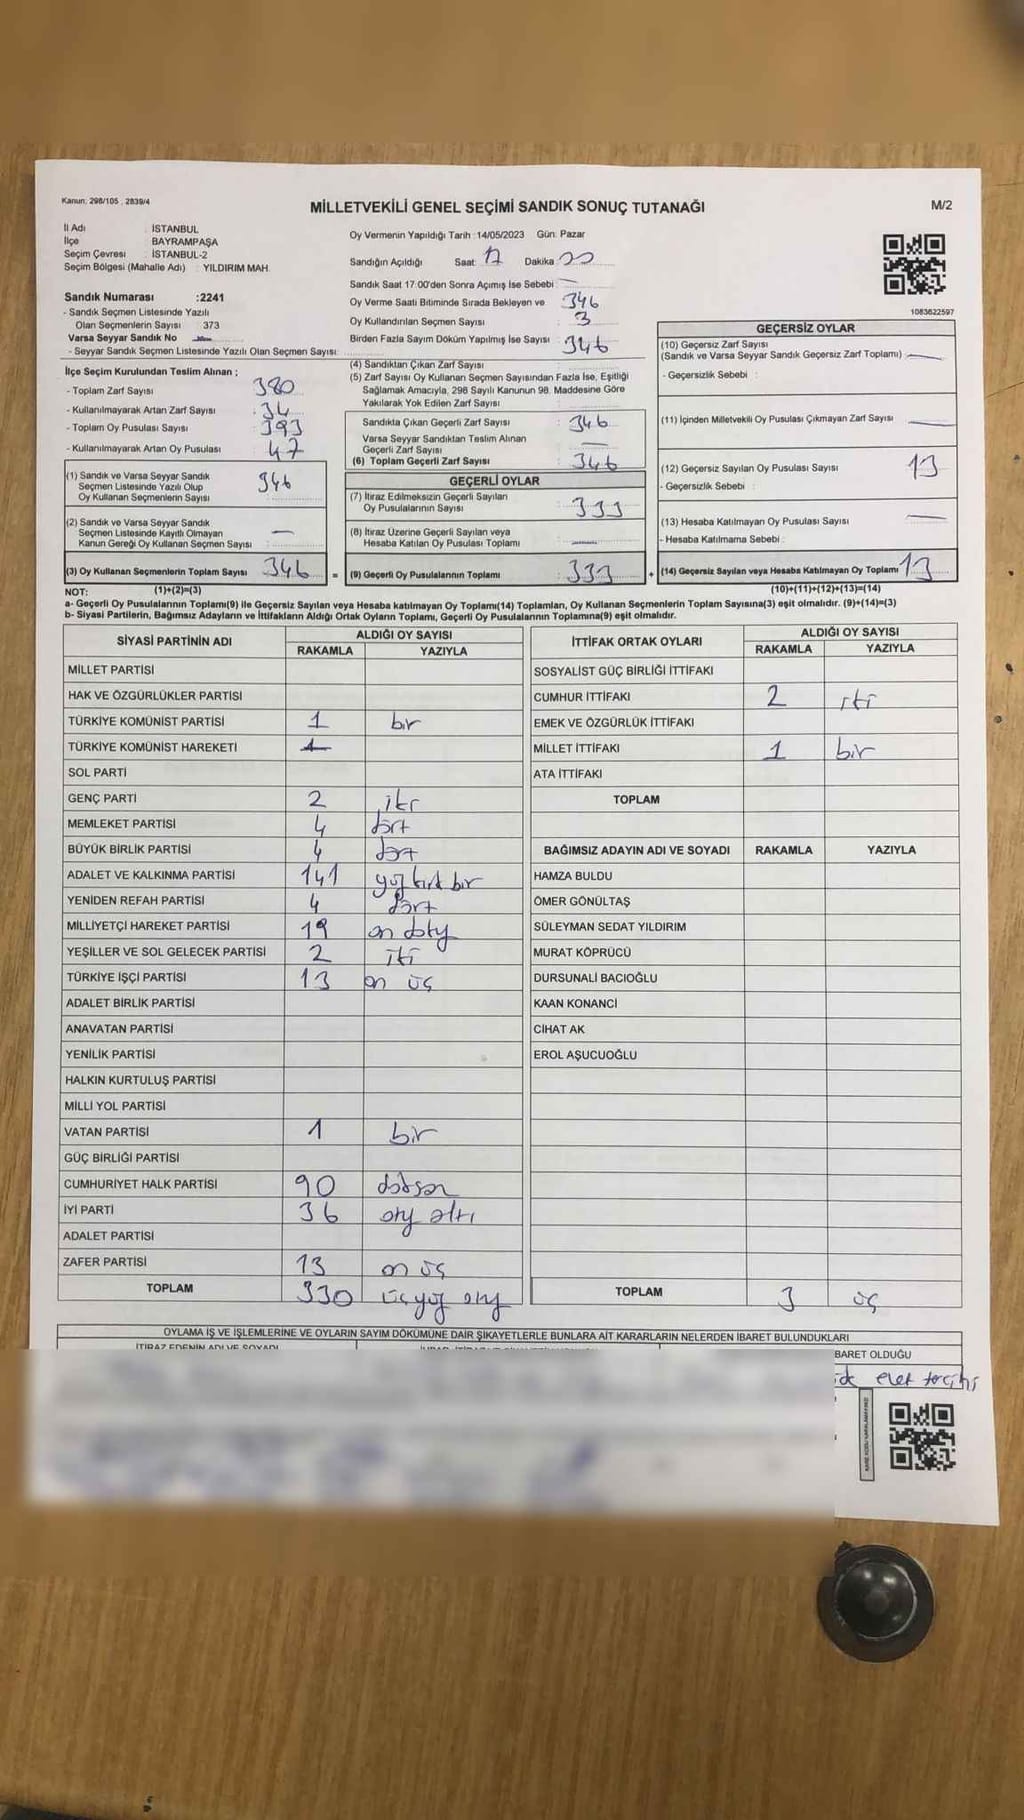 Kanun: 298/105 , 2839/4
MİLLETVEKİLİ GENEL SEÇİMİ SANDIK SONUÇ TUTANAĞI
M/2
İl Adı : İSTANBUL
İlçe : BAYRAMPAŞA
Seçim Çevresi : İSTANBUL-2
Seçim Bölgesi (Mahalle Adı) : YILDIRIM MAH.
Sandık Numarası :2241
- Sandık Seçmen Listesinde Yazılı
Olan Seçmenlerin Sayısı : 373
Varsa Seyyar Sandık No
- Seyyar Sandık Seçmen Listesinde Yazılı Olan Seçmen Sayısı:
İlçe Seçim Kurulundan Teslim Alınan ;
- Toplam Zarf Sayısı : 380
- Kullanılmayarak Artan Zarf Sayısı : 34
- Toplam Oy Pusulası Sayısı : 393
- Kullanılmayarak Artan Oy Pusulası : 47
(1) Sandık ve Varsa Seyyar Sandık
Seçmen Listesinde Yazılı Olup
Oy Kullanan Seçmenlerin Sayısı : 346
(2) Sandık ve Varsa Seyyar Sandık
Seçmen Listesinde Kayıtlı Olmayan
Kanun Gereği Oy Kullanan Seçmen Sayısı : —
(3) Oy Kullanan Seçmenlerin Toplam Sayısı : 346
(1)+(2)=(3)
Oy Vermenin Yapıldığı Tarih :14/05/2023 Gün: Pazar
Sandığın Açıldığı Saat: 17 Dakika
Sandık Saat 17:00'den Sonra Açımış İse Sebebi : —
Oy Verme Saati Bitiminde Sırada Bekleyen ve 346
Oy Kullandırılan Seçmen Sayısı : 3
Birden Fazla Sayım Döküm Yapılmış İse Sayısı : 346
(4) Sandıktan Çıkan Zarf Sayısı :
(5) Zarf Sayısı Oy Kullanan Seçmen Sayısından Fazla İse, Eşitliği
Sağlamak Amacıyla, 298 Sayılı Kanunun 98. Maddesine Göre
Yakılarak Yok Edilen Zarf Sayısı :
Sandıkta Çıkan Geçerli Zarf Sayısı : 346
Varsa Seyyar Sandıktan Teslim Alınan
Geçerli Zarf Sayısı : —
(6) Toplam Geçerli Zarf Sayısı : 346
GEÇERLİ OYLAR
(7) İtiraz Edilmeksizin Geçerli Sayılan
Oy Pusulalarının Sayısı : 333
(8) İtiraz Üzerine Geçerli Sayılan veya
Hesaba Katılan Oy Pusulası Toplamı : —
= (9) Geçerli Oy Pusulalarının Toplamı : 333
1083622597
GEÇERSİZ OYLAR
(10) Geçersiz Zarf Sayısı
(Sandık ve Varsa Seyyar Sandık Geçersiz Zarf Toplamı) : —
- Geçersizlik Sebebi :
(11) İçinden Milletvekili Oy Pusulası Çıkmayan Zarf Sayısı : —
(12) Geçersiz Sayılan Oy Pusulası Sayısı : 13
- Geçersizlik Sebebi :
(13) Hesaba Katılmayan Oy Pusulası Sayısı : —
- Hesaba Katılmama Sebebi :
+ (14) Geçersiz Sayılan veya Hesaba Katılmayan Oy Toplamı : 13
(10)+(11)+(12)+(13)=(14)
NOT:
a- Geçerli Oy Pusulalarının Toplamı(9) ile Geçersiz Sayılan veya Hesaba katılmayan Oy Toplamı(14) Toplamları, Oy Kullanan Seçmenlerin Toplam Sayısına(3) eşit olmalıdır. (9)+(14)=(3)
b- Siyasi Partilerin, Bağımsız Adayların ve İttifakların Aldığı Ortak Oyların Toplamı, Geçerli Oy Pusulalarının Toplamına(9) eşit olmalıdır.
SİYASİ PARTİNİN ADI ALDIĞI OY SAYISI
RAKAMLA YAZIYLA
MİLLET PARTİSİ
HAK VE ÖZGÜRLÜKLER PARTİSİ
TÜRKİYE KOMÜNİST PARTİSİ 1 bir
TÜRKİYE KOMÜNİST HAREKETİ
SOL PARTİ
GENÇ PARTİ 2 iki
MEMLEKET PARTİSİ 4 dört
BÜYÜK BİRLİK PARTİSİ 4 dört
ADALET VE KALKINMA PARTİSİ 141 yüz kırk bir
YENİDEN REFAH PARTİSİ 4 dört
MİLLİYETÇİ HAREKET PARTİSİ 19 on dokuz
YEŞİLLER VE SOL GELECEK PARTİSİ 2 iki
TÜRKİYE İŞÇİ PARTİSİ 13 on üç
ADALET BİRLİK PARTİSİ
ANAVATAN PARTİSİ
YENİLİK PARTİSİ
HALKIN KURTULUŞ PARTİSİ
MİLLİ YOL PARTİSİ
VATAN PARTİSİ 1 bir
GÜÇ BİRLİĞİ PARTİSİ
CUMHURİYET HALK PARTİSİ 90 doksan
İYİ PARTİ 36 otuz altı
ADALET PARTİSİ
ZAFER PARTİSİ 13 on üç
TOPLAM 330 üçyüz otuz
İTTİFAK ORTAK OYLARI ALDIĞI OY SAYISI
RAKAMLA YAZIYLA
SOSYALİST GÜÇ BİRLİĞİ İTTİFAKI
CUMHUR İTTİFAKI 2 iki
EMEK VE ÖZGÜRLÜK İTTİFAKI
MİLLET İTTİFAKI 1 bir
ATA İTTİFAKI
TOPLAM
BAĞIMSIZ ADAYIN ADI VE SOYADI RAKAMLA YAZIYLA
HAMZA BULDU
ÖMER GÖNÜLTAŞ
SÜLEYMAN SEDAT YILDIRIM
MURAT KÖPRÜCÜ
DURSUNALİ BACIOĞLU
KAAN KONANCİ
CİHAT AK
EROL AŞUCUOĞLU
TOPLAM 3 üç
OYLAMA İŞ VE İŞLEMLERİNE VE OYLARIN SAYIM DÖKÜMÜNE DAİR ŞİKAYETLERLE BUNLARA AİT KARARLARIN NELERDEN İBARET BULUNDUKLARI
İTİRAZ EDENİN ADI VE SOYADI
BARET OLDUĞU